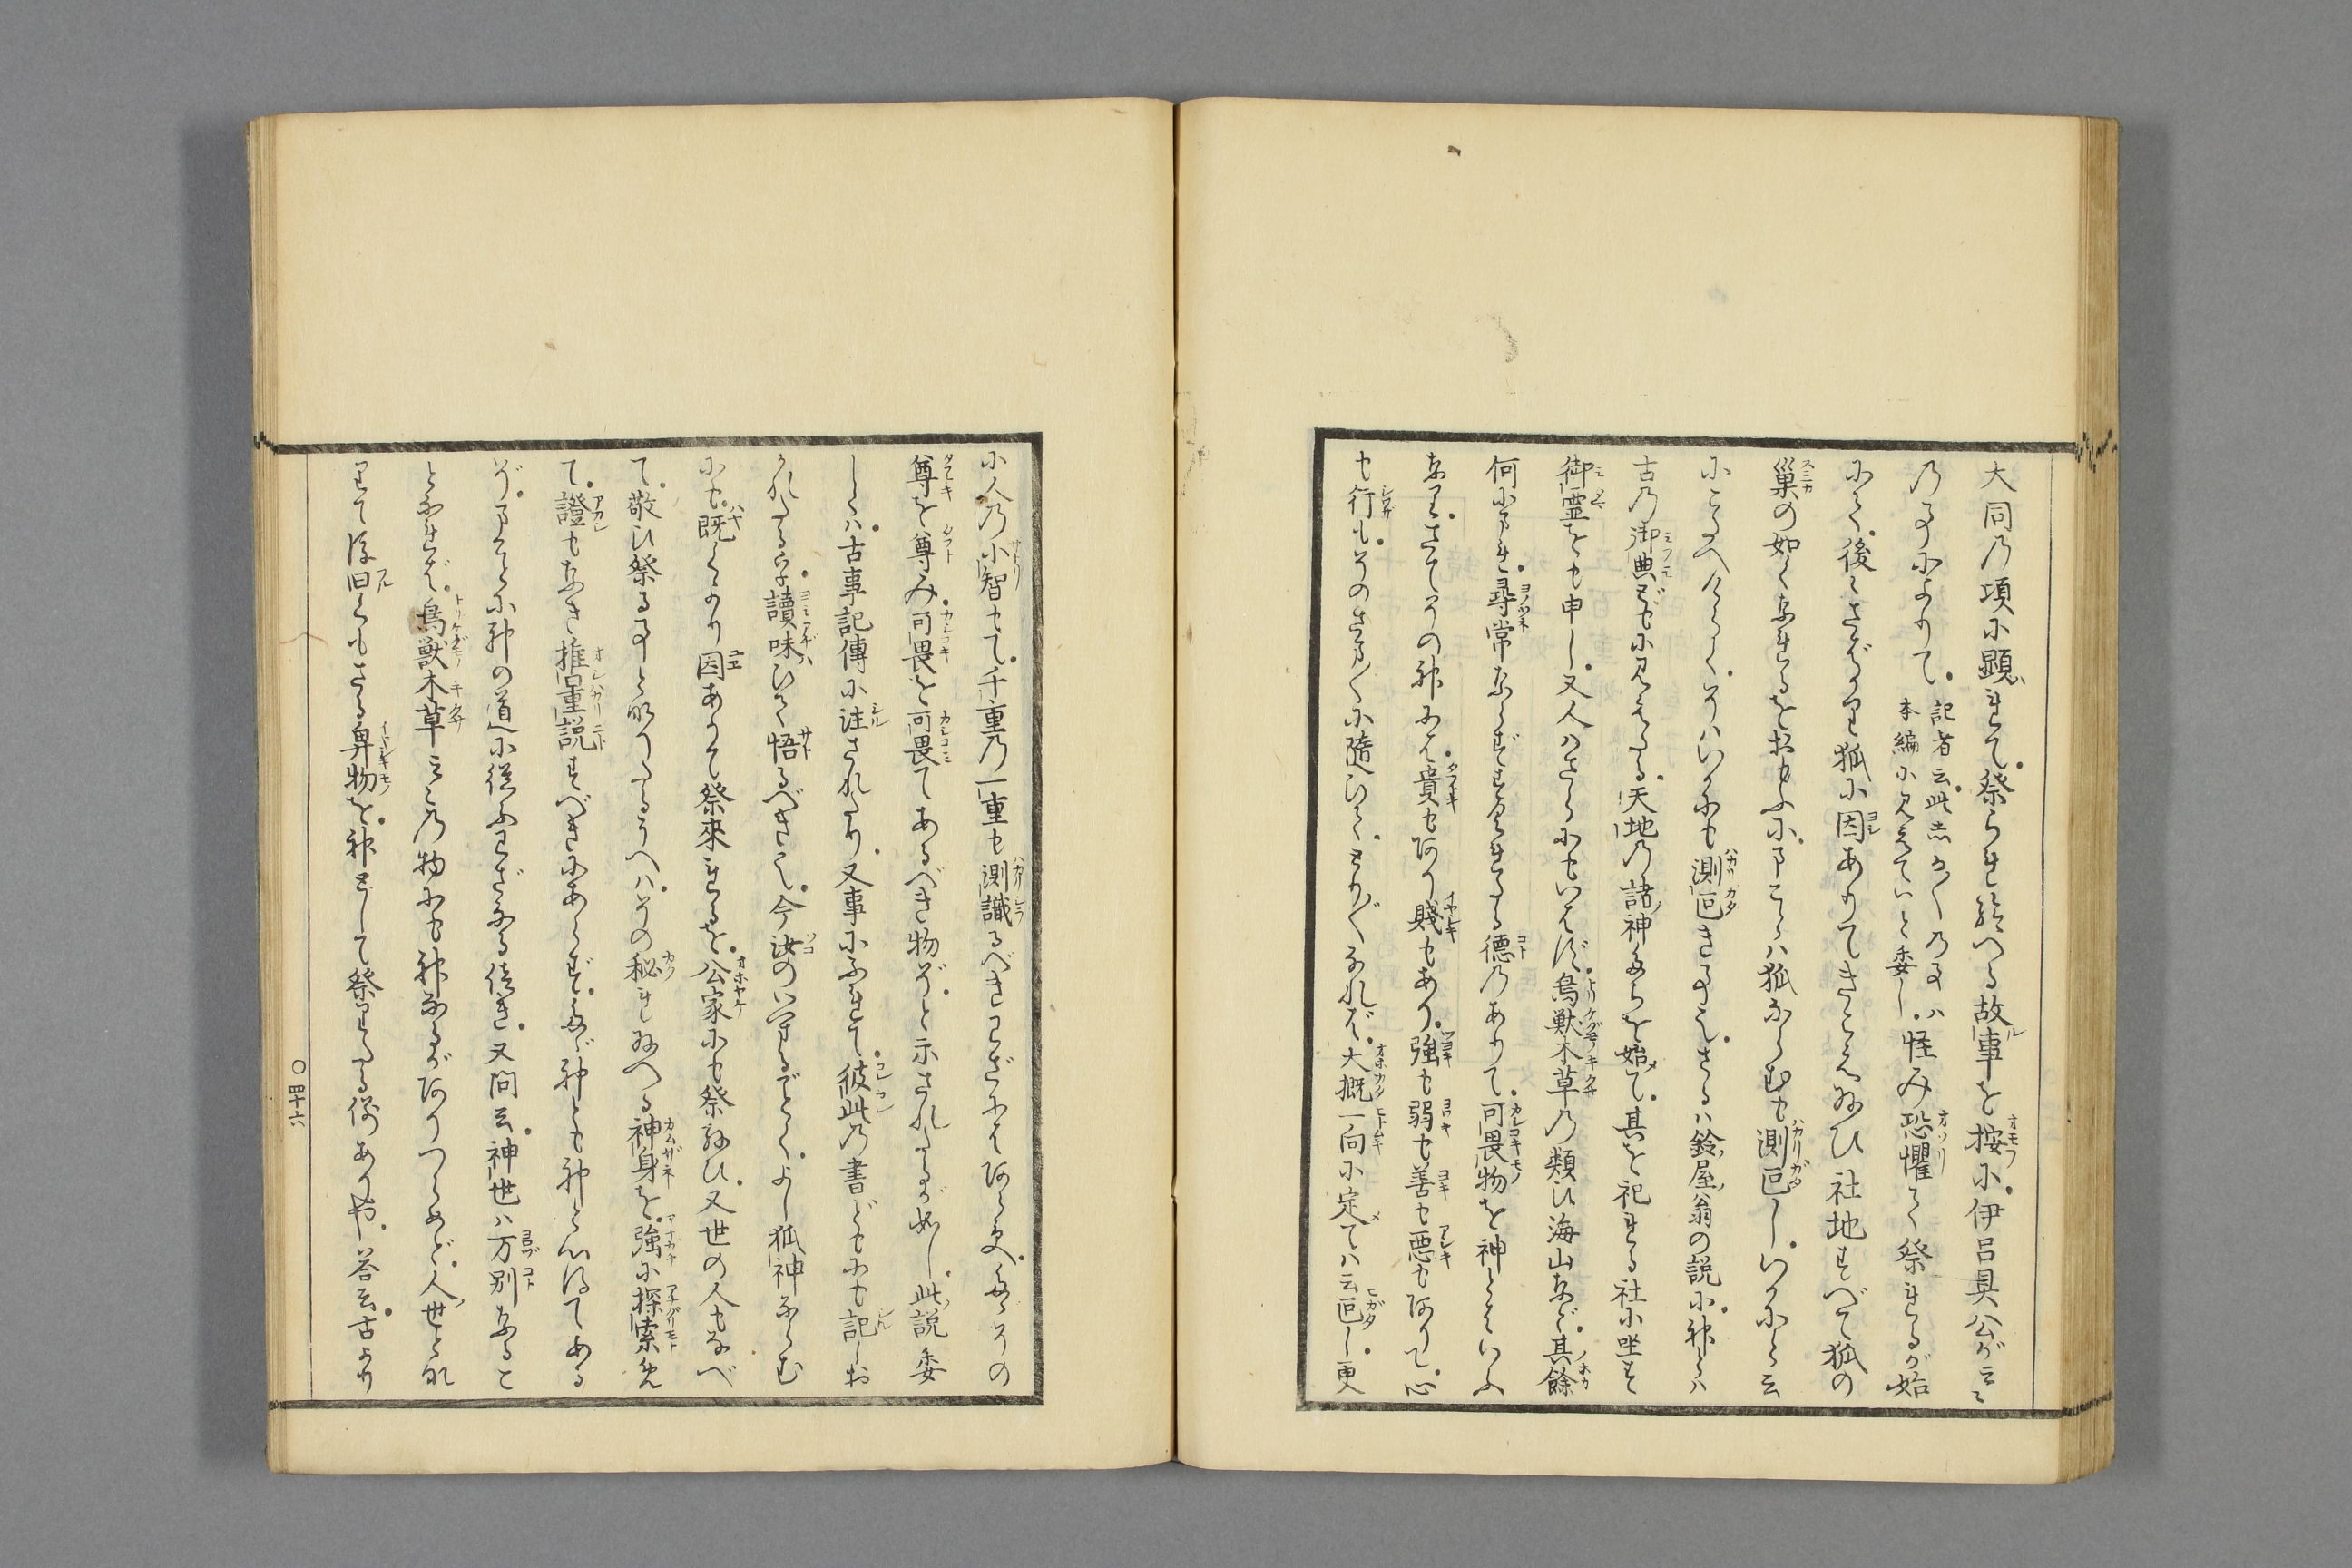 大同乃項小顕れて。祭られ給へる故事を按ふ小。伊呂具公が云々
乃事ふよりて。
記者云。此しか〴〵乃事ハ
本編小見えていと委し。
怪み恐懼て祭れるが始
ふて。後々さばかり狐小因ありてきこえ給ひ社地すべて狐の
巣の如くなれるをおもふ小。まことハ狐ならむも測叵し。いかにと云
小こたへけらく。そハいかにも測叵き事也。さるハ鈴屋翁の説小。神とハ
古乃御典等小見えたる。天地乃諸神たちを始て。其を祀れる社小坐す
御霊をも申し。又人ハさら小もいはず。鳥獣木草乃類ひ海山など。其餘
何小まれ。尋常ならずすぐれたる徳乃ありて。可畏物を神とはいふ
なり。さてその神ふは貴もあり賤もあり。強も弱も善も悪もありて。心
も行も。そのさま〴〵小随ひて。とり〴〵なれば。大概一向小定てハ云叵し。更
小人乃小智もて。千重乃一重も測識るべきわざふはあらず。たゞその
尊を尊み。可畏を可畏てあるべき物ぞ。と示されたるが如し。此説委
しくハ。古事記傳小注されたり。又事ふふれて。彼此乃書どもふも記しお
かれたるを。讀味ひて悟るべき也。今汝のいへるごとく。よし狐神ならむ
ふも。既くより因ありて祭來れるを。公家小も祭給ひ。又世の人もなべ
て。敬ひ祭る事と成りたるうへハ。その秘れ給へる神身を。強小探索め
て。證もなき推量説すべきふあらず。たゞ神とも神と心得てある
ぞ。まこと小神の道小従ふわざなる倍き。又問云。神世ハ万別なるこ
となれば。鳥獣木草云々乃物ふも神なるがありつらめど。人世と成
りて後旧くもさる卑物を。神として祭りたる例ありや。答云。古より
〇四十六